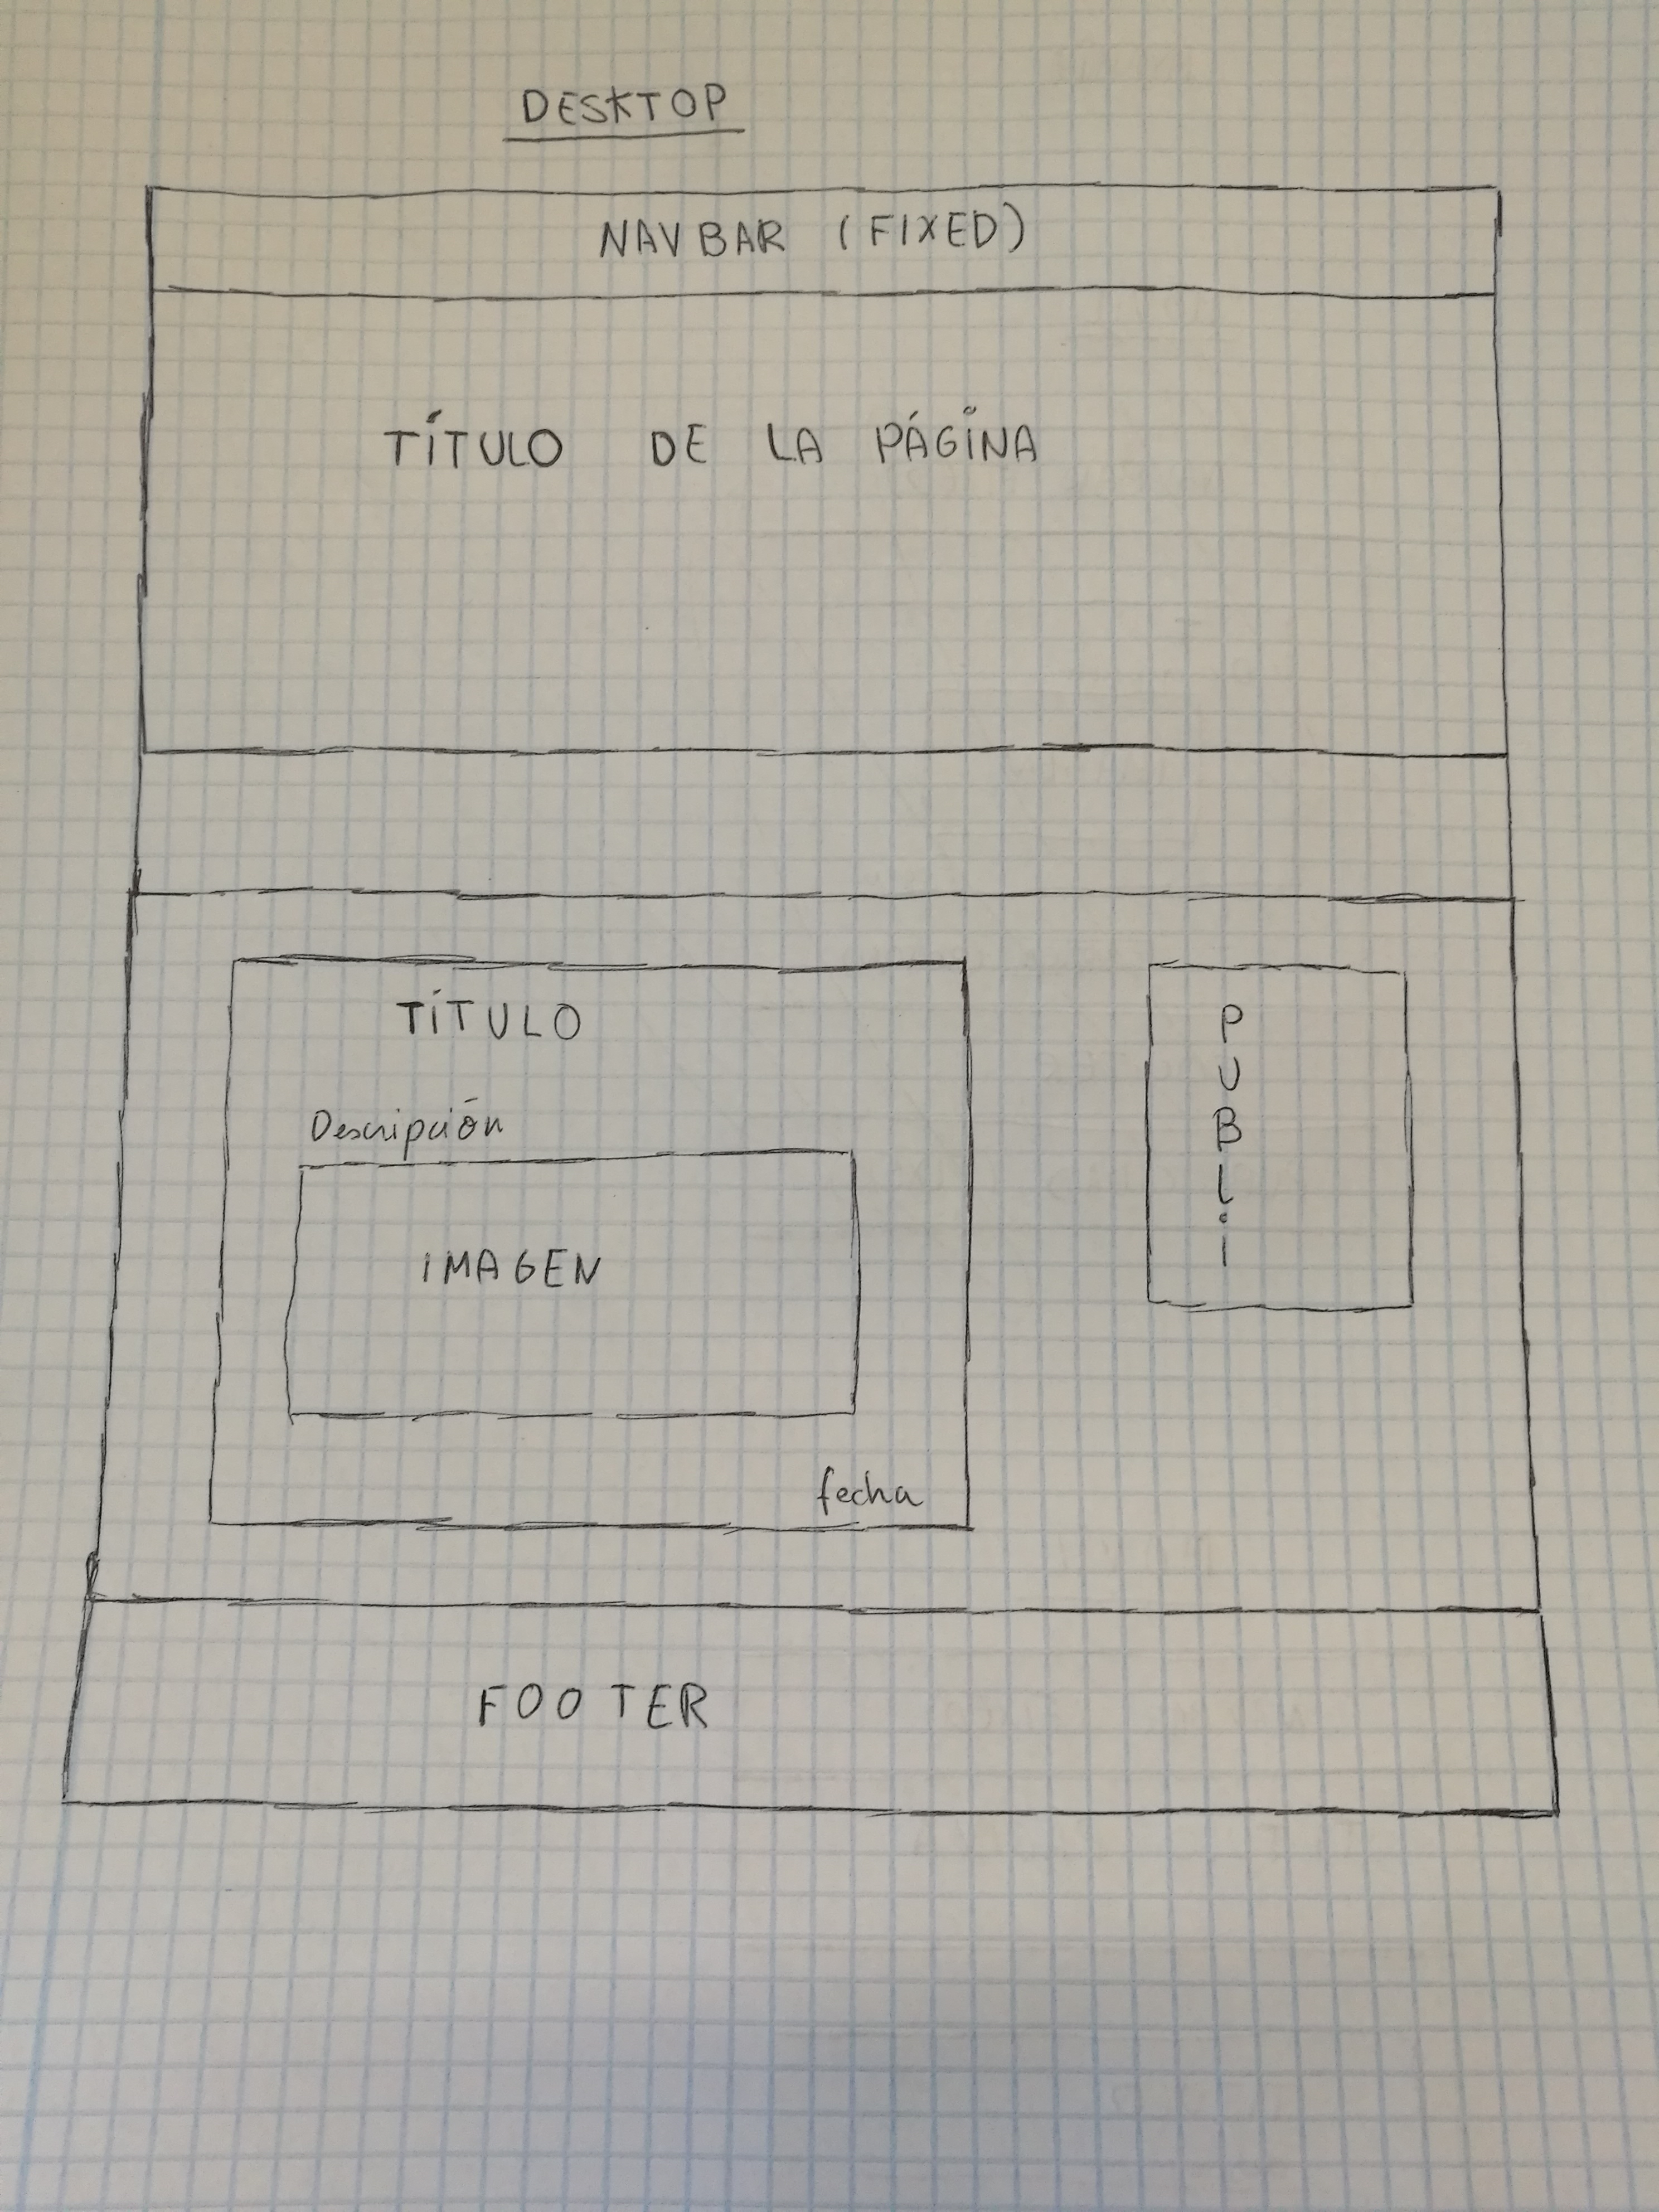 DESKTOP
NAVBAR (FIXED)
TÍTULO DE LA PÁGINA
TÍTULO
Descripción
IMAGEN
fecha
P
U
B
L
i
FOOTER